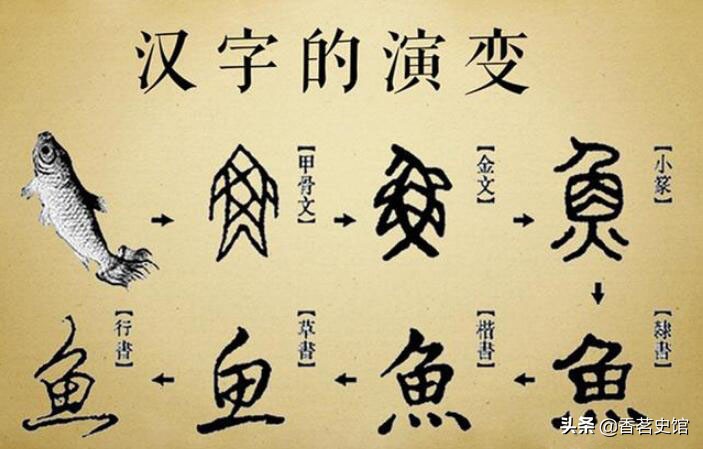 汉字的演变
【甲骨文】
【金文】
【小篆】
【隸書】
魚
【楷書】
魚
【草書】
鱼
【行書】
鱼
头条 @香茗史馆